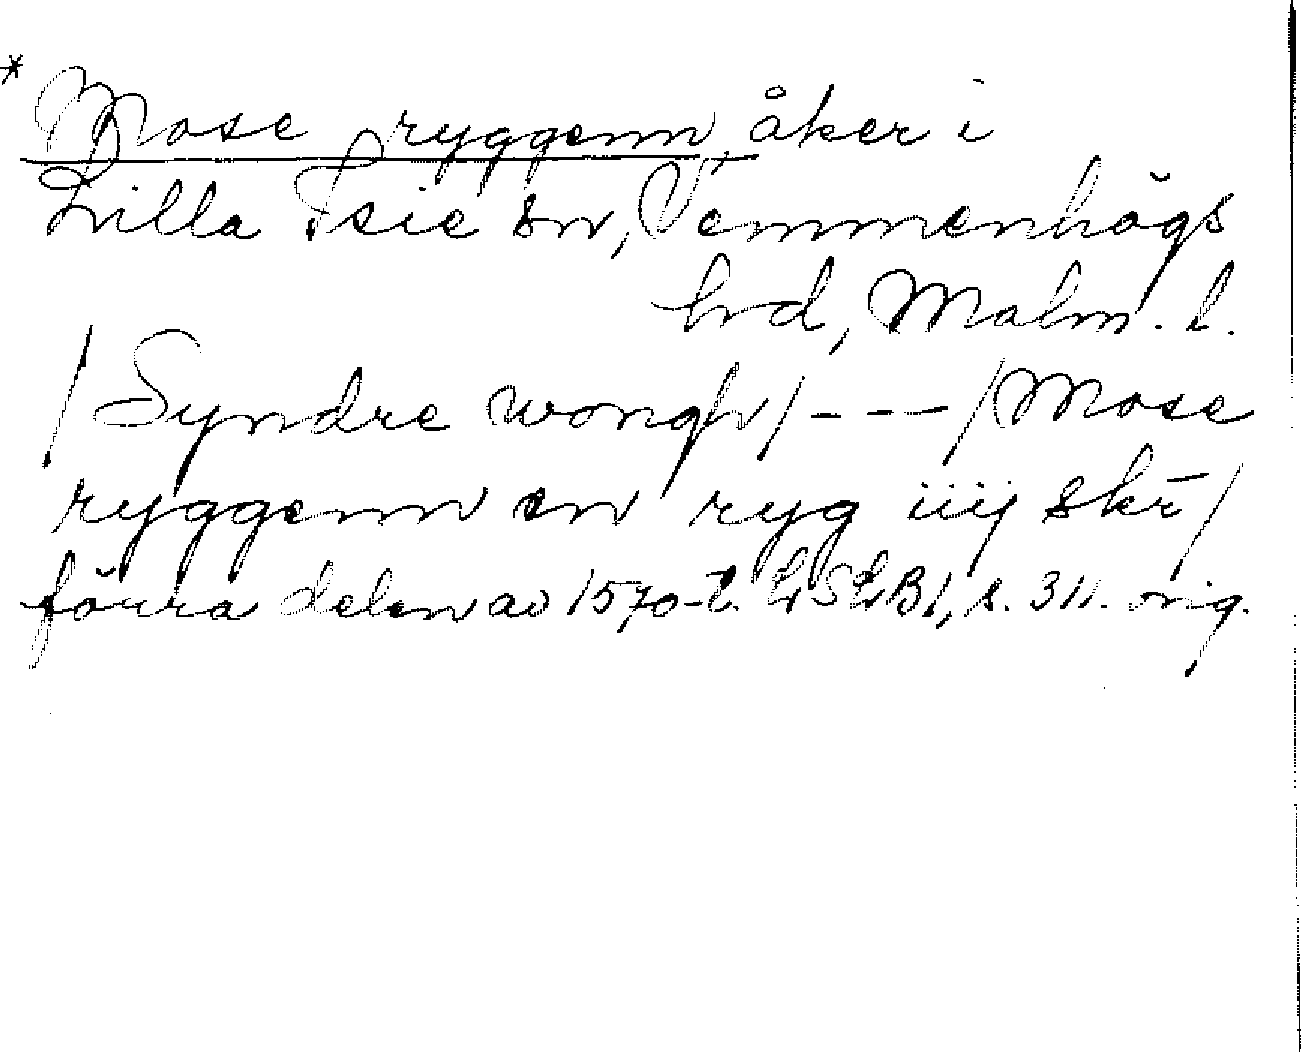 * Mose ryggenn, åker i
Lilla Isie sn, Vemmenhögs
hd, Malm. l.
/ Syndre wongh / - - - / Mose
ryggenn en ryg iiij skr /
förra delen av 1570-t. LSLB 1, s. 311. orig.